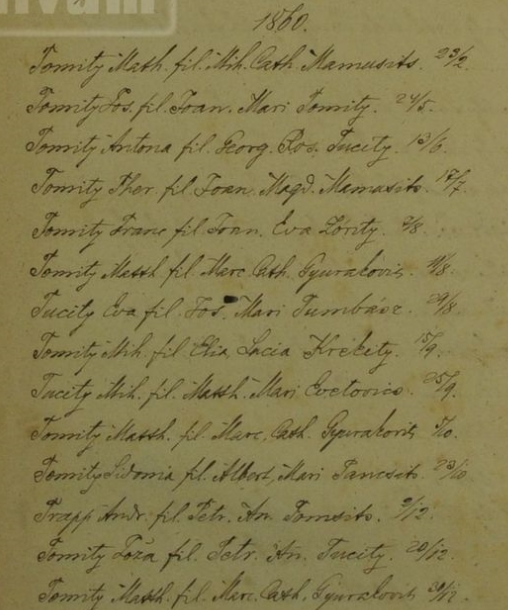 1860.
Tomity Math. fil. Mih. Cath. Mamusits. 23/2.
Tomity Jos. fil. Joan. Mari Tomity. 24/5.
Tomity Antona fil. Georg. Ros. Tucity. 13/6.
Tomity Ther. fil. Joan. Magd. Mamusits. 17/7.
Tomity Franc fil. Joan. Eva Zority. 2/8.
Tomity Matth fil. Marc. Cath. Gyurakovits. 11/8.
Tucity Eva fil. Jos. Mari Tumbász. 29/8.
Tomity Mih. fil. Elia, Lucia Krekity. 15/9.
Tucity Mih. fil. Matth. Mari 25/9.
Tomity Matth. fil. Marc. Cath. Gyurakovits
Tomity Sidonia fil. Albert, Mari Pancsits. 23/10
Trapp Andr. fil. Petr. An. Tomsits. 9/12.
Tomity Loza fil. Petr. An. Tucity. 20/12.
Tomity Matth. fil. Marc. Cath. Gyurakovits 30/12.